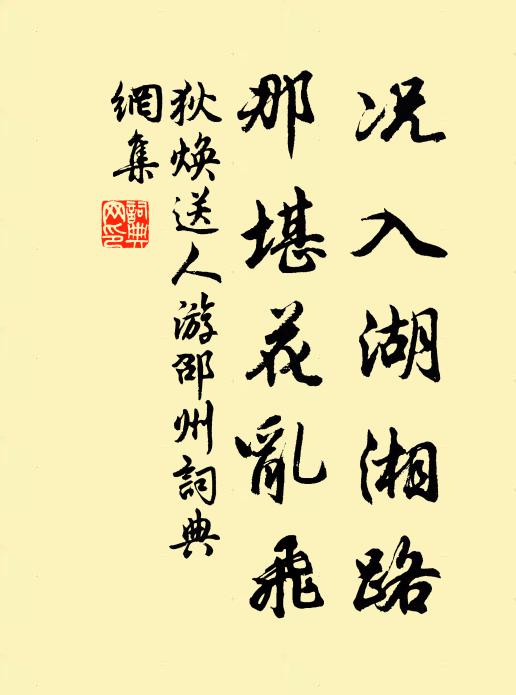 况入湖湘路
那堪花亂飛
狄煥送人游邵州詞典
網集
詞典
网印